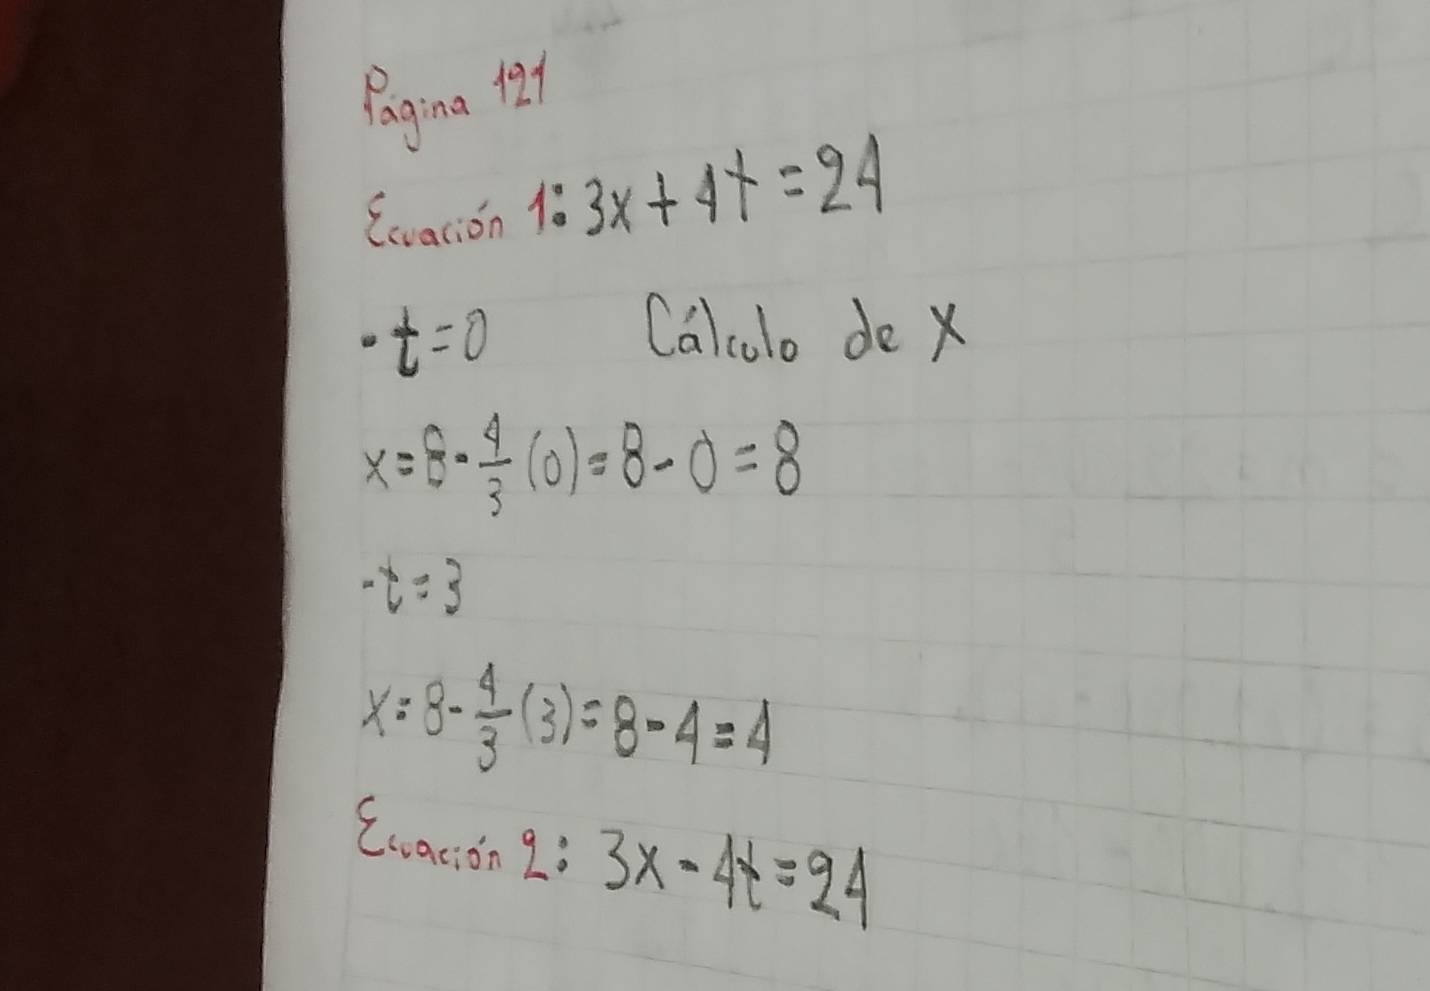 Página 121
Ecuación 1: 3x + 4t = 24
- t = 0 Cálculo de x
x = 8 - 4/3 (0) = 8 - 0 = 8
- t = 3
x = 8 - 4/3 (3) = 8 - 4 = 4
Ecuación 2: 3x - 4t = 24